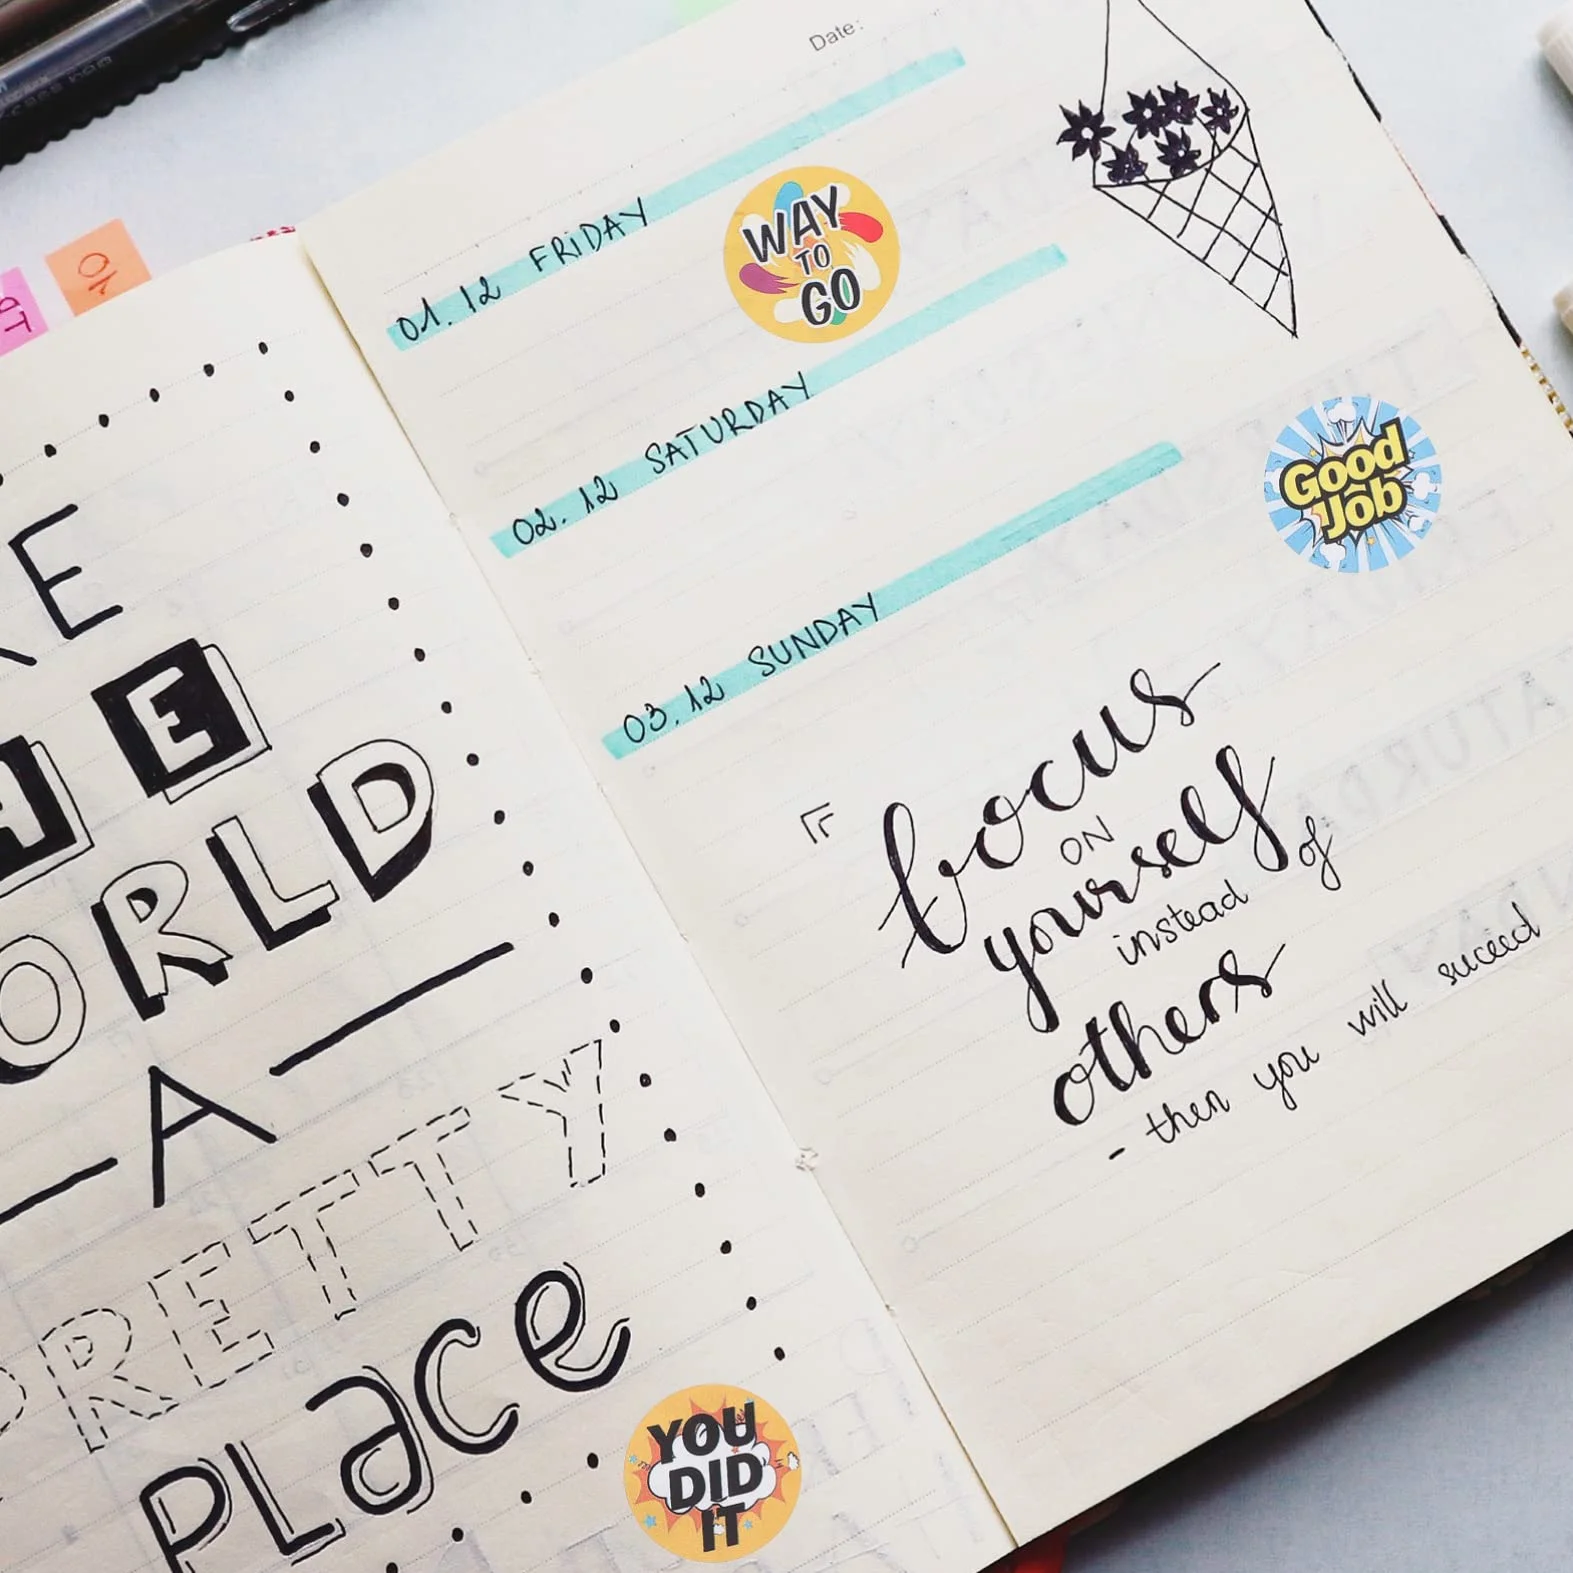 Date:
01.12 FRIDAY
WAY
TO
GO
02.12 SATURDAY
Good
Job
03.12 SUNDAY
focus
ON
yourself
instead of
others
- then you will suceed
E
ORLD
A
PRETTY
PLace
YOU
DID
IT